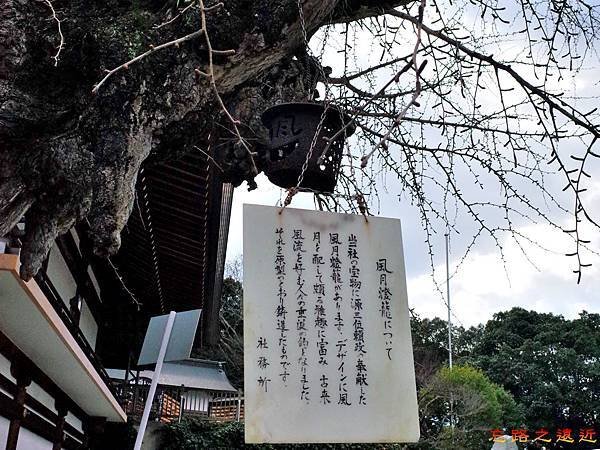 風
風月燈籠について
当社の宝物に源三位頼政の奉献した
風月燈籠があります。デザインに風
月を配して頗る雅趣に富み 古来
風流を好む人々の垂涎の的となりました。
それを原型のまゝ鋳造したものです。
社務所
忘路之遠近